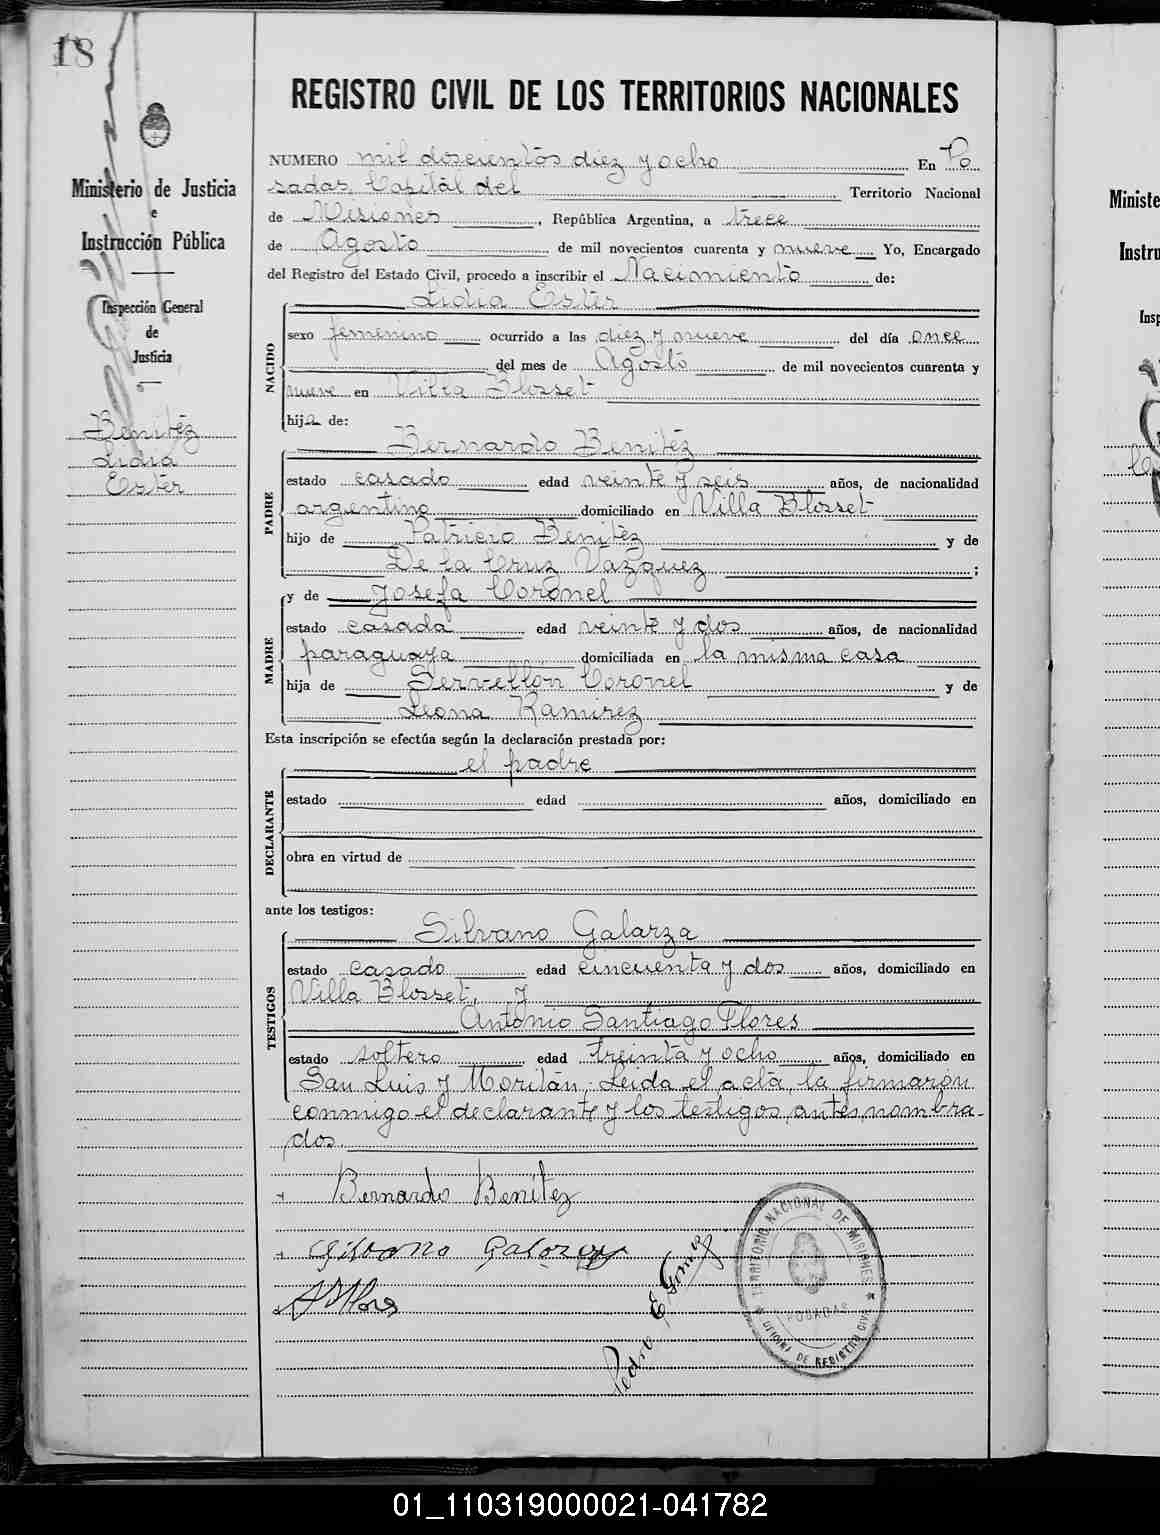 18
REGISTRO CIVIL DE LOS TERRITORIOS NACIONALES
Ministerio de Justicia
e
Instrucción Pública
Inspección General
de
Justicia
Benitéz
Lidia
Ester
NUMERO mil doscientos diez y ocho En Po
sadas, Capital del Territorio Nacional
de Misiones, República Argentina, a trece
de Agosto de mil novecientos cuarenta y nueve Yo, Encargado
del Registro del Estado Civil, procedo a inscribir el Nacimiento de:
NACIDO
Lidia Ester
sexo femenino ocurrido a las diez y nueve del día once
del mes de Agosto de mil novecientos cuarenta y
nueve en Villa Blosset
hija de:
PADRE
Bernardo Benitéz
estado casado edad veinte y seis años, de nacionalidad
argentino domiciliado en Villa Blosset
hijo de Patricio Benitéz y de
De la Cruz Vazquez;
MADRE
y de Josefa Coronel
estado casada edad veinte y dos años, de nacionalidad
paraguaya domiciliada en la misma casa
hija de Servellón Coronel y de
Leona Ramirez
Esta inscripción se efectúa según la declaración prestada por:
DECLARANTE
el padre
estado edad años, domiciliado en
obra en virtud de
ante los testigos:
TESTIGOS
Silvano Galarza
estado casado edad cincuenta y dos años, domiciliado en
Villa Blosset, y
Antonio Santiago Flores
estado soltero edad treinta y ocho años, domiciliado en
San Luis y Moritán. Leída el acta, la firmaron
conmigo el declarante y los testigos antes nombra-
dos.
Bernardo Benítez
Silvano Galarza
Pedro E Gomez
TERRITORIO NACIONAL DE MISIONES
POSADAS
OFICINA DE REGISTRO CIVIL
Ministe
Instru
Insp
01_110319000021-041782